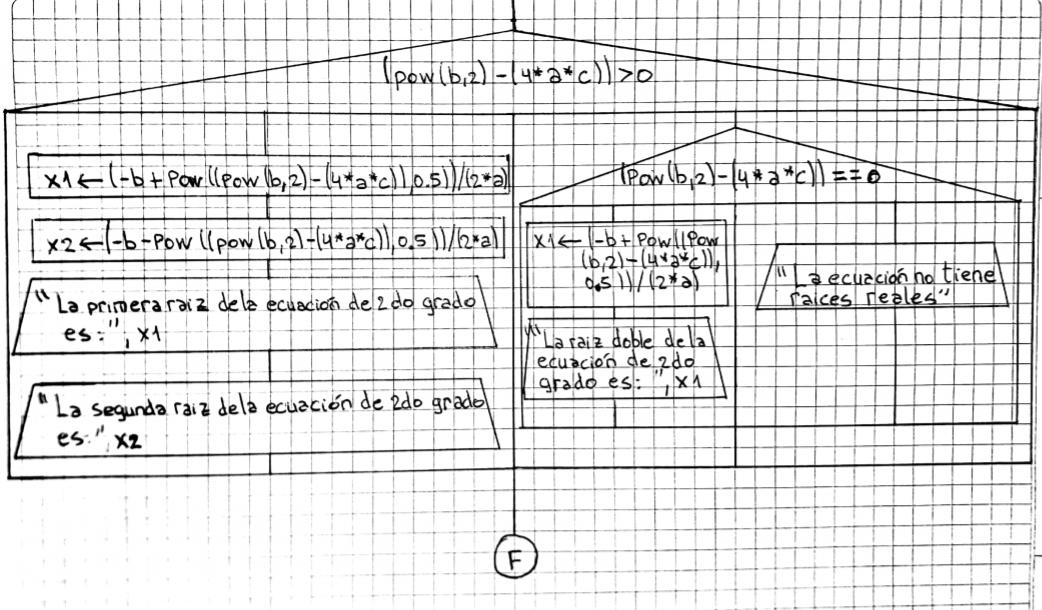 (pow(b,2)-(4*a*c))>0
x1←(-b+Pow((pow(b,2)-(4*a*c)),0.5))/(2*a)
x2←(-b-Pow((pow(b,2)-(4*a*c)),0.5))/(2*a)
"La primera raiz dela ecuación de 2do grado
es:", x1
"La segunda raiz dela ecuación de 2do grado
es:", x2
(Pow(b,2)-(4*a*c))==0
x1←(-b+Pow((Pow
(b,2)-(4*a*c)),
0.5))/(2*a)
"La raiz doble dela
ecuación de 2do
grado es: ", x1
"La ecuación no tiene
raices reales"
F